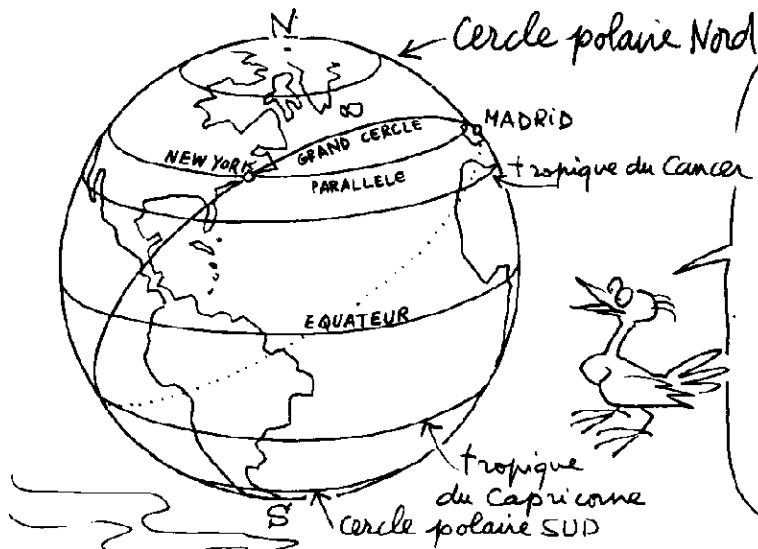 N
cercle polaire Nord
MADRID
GRAND CERCLE
NEW YORK
tropique du Cancer
PARALLELE
EQUATEUR
tropique
du Capricorne
S
cercle polaire SUD